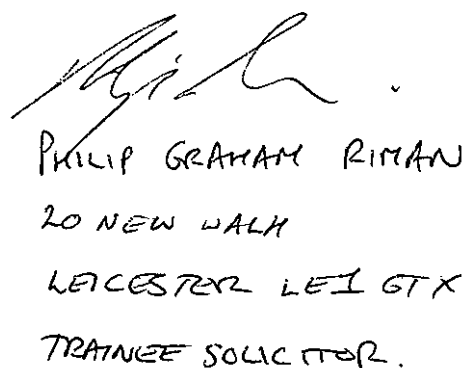 PHILIP GRAHAM RIMAN
20 NEW WALK
LEICESTER LE1 6TX
TRAINEE SOLICITOR.